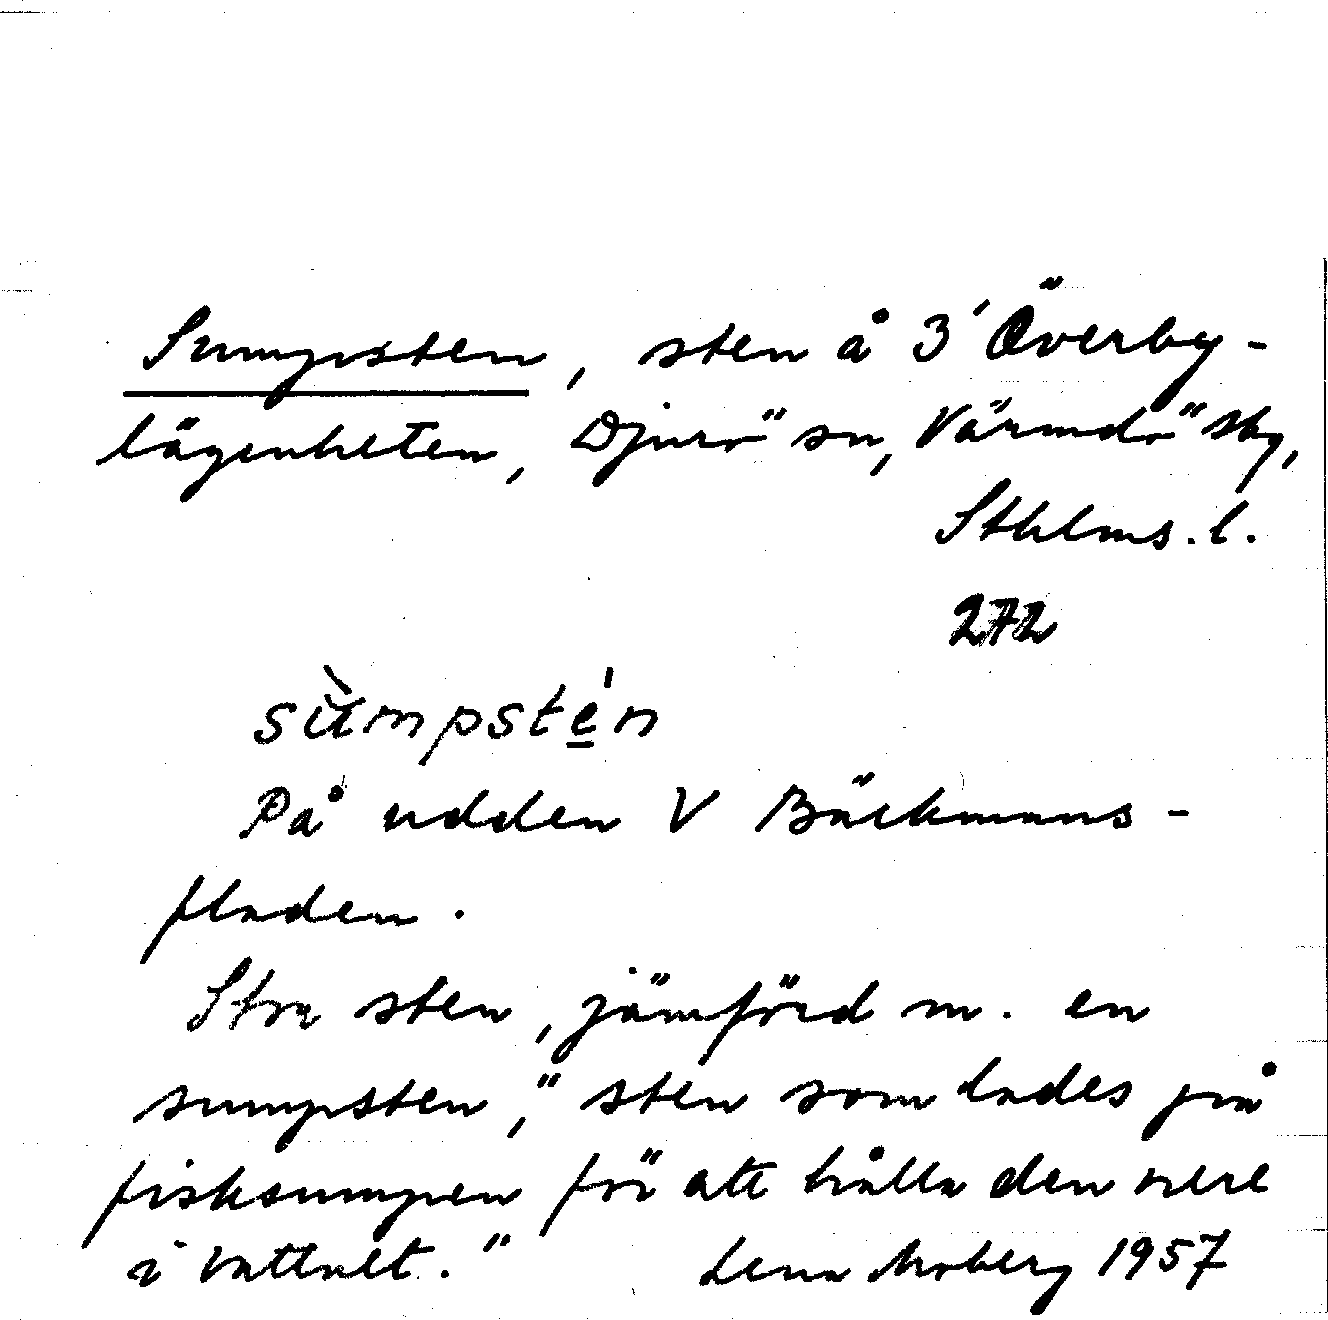 Sumpsten, sten å 3' Överby-
lägenheten, Djurö sn, Värmdö skg,
Sthlms. l.
272
sùmpsté̱n
På udden V Bäckmans-
fladen.
Stor sten, jämförd m. en
sumpsten, "sten som lades på
fisksumpen för att hålla den nere
i vattnet."     Lena Moberg 1957